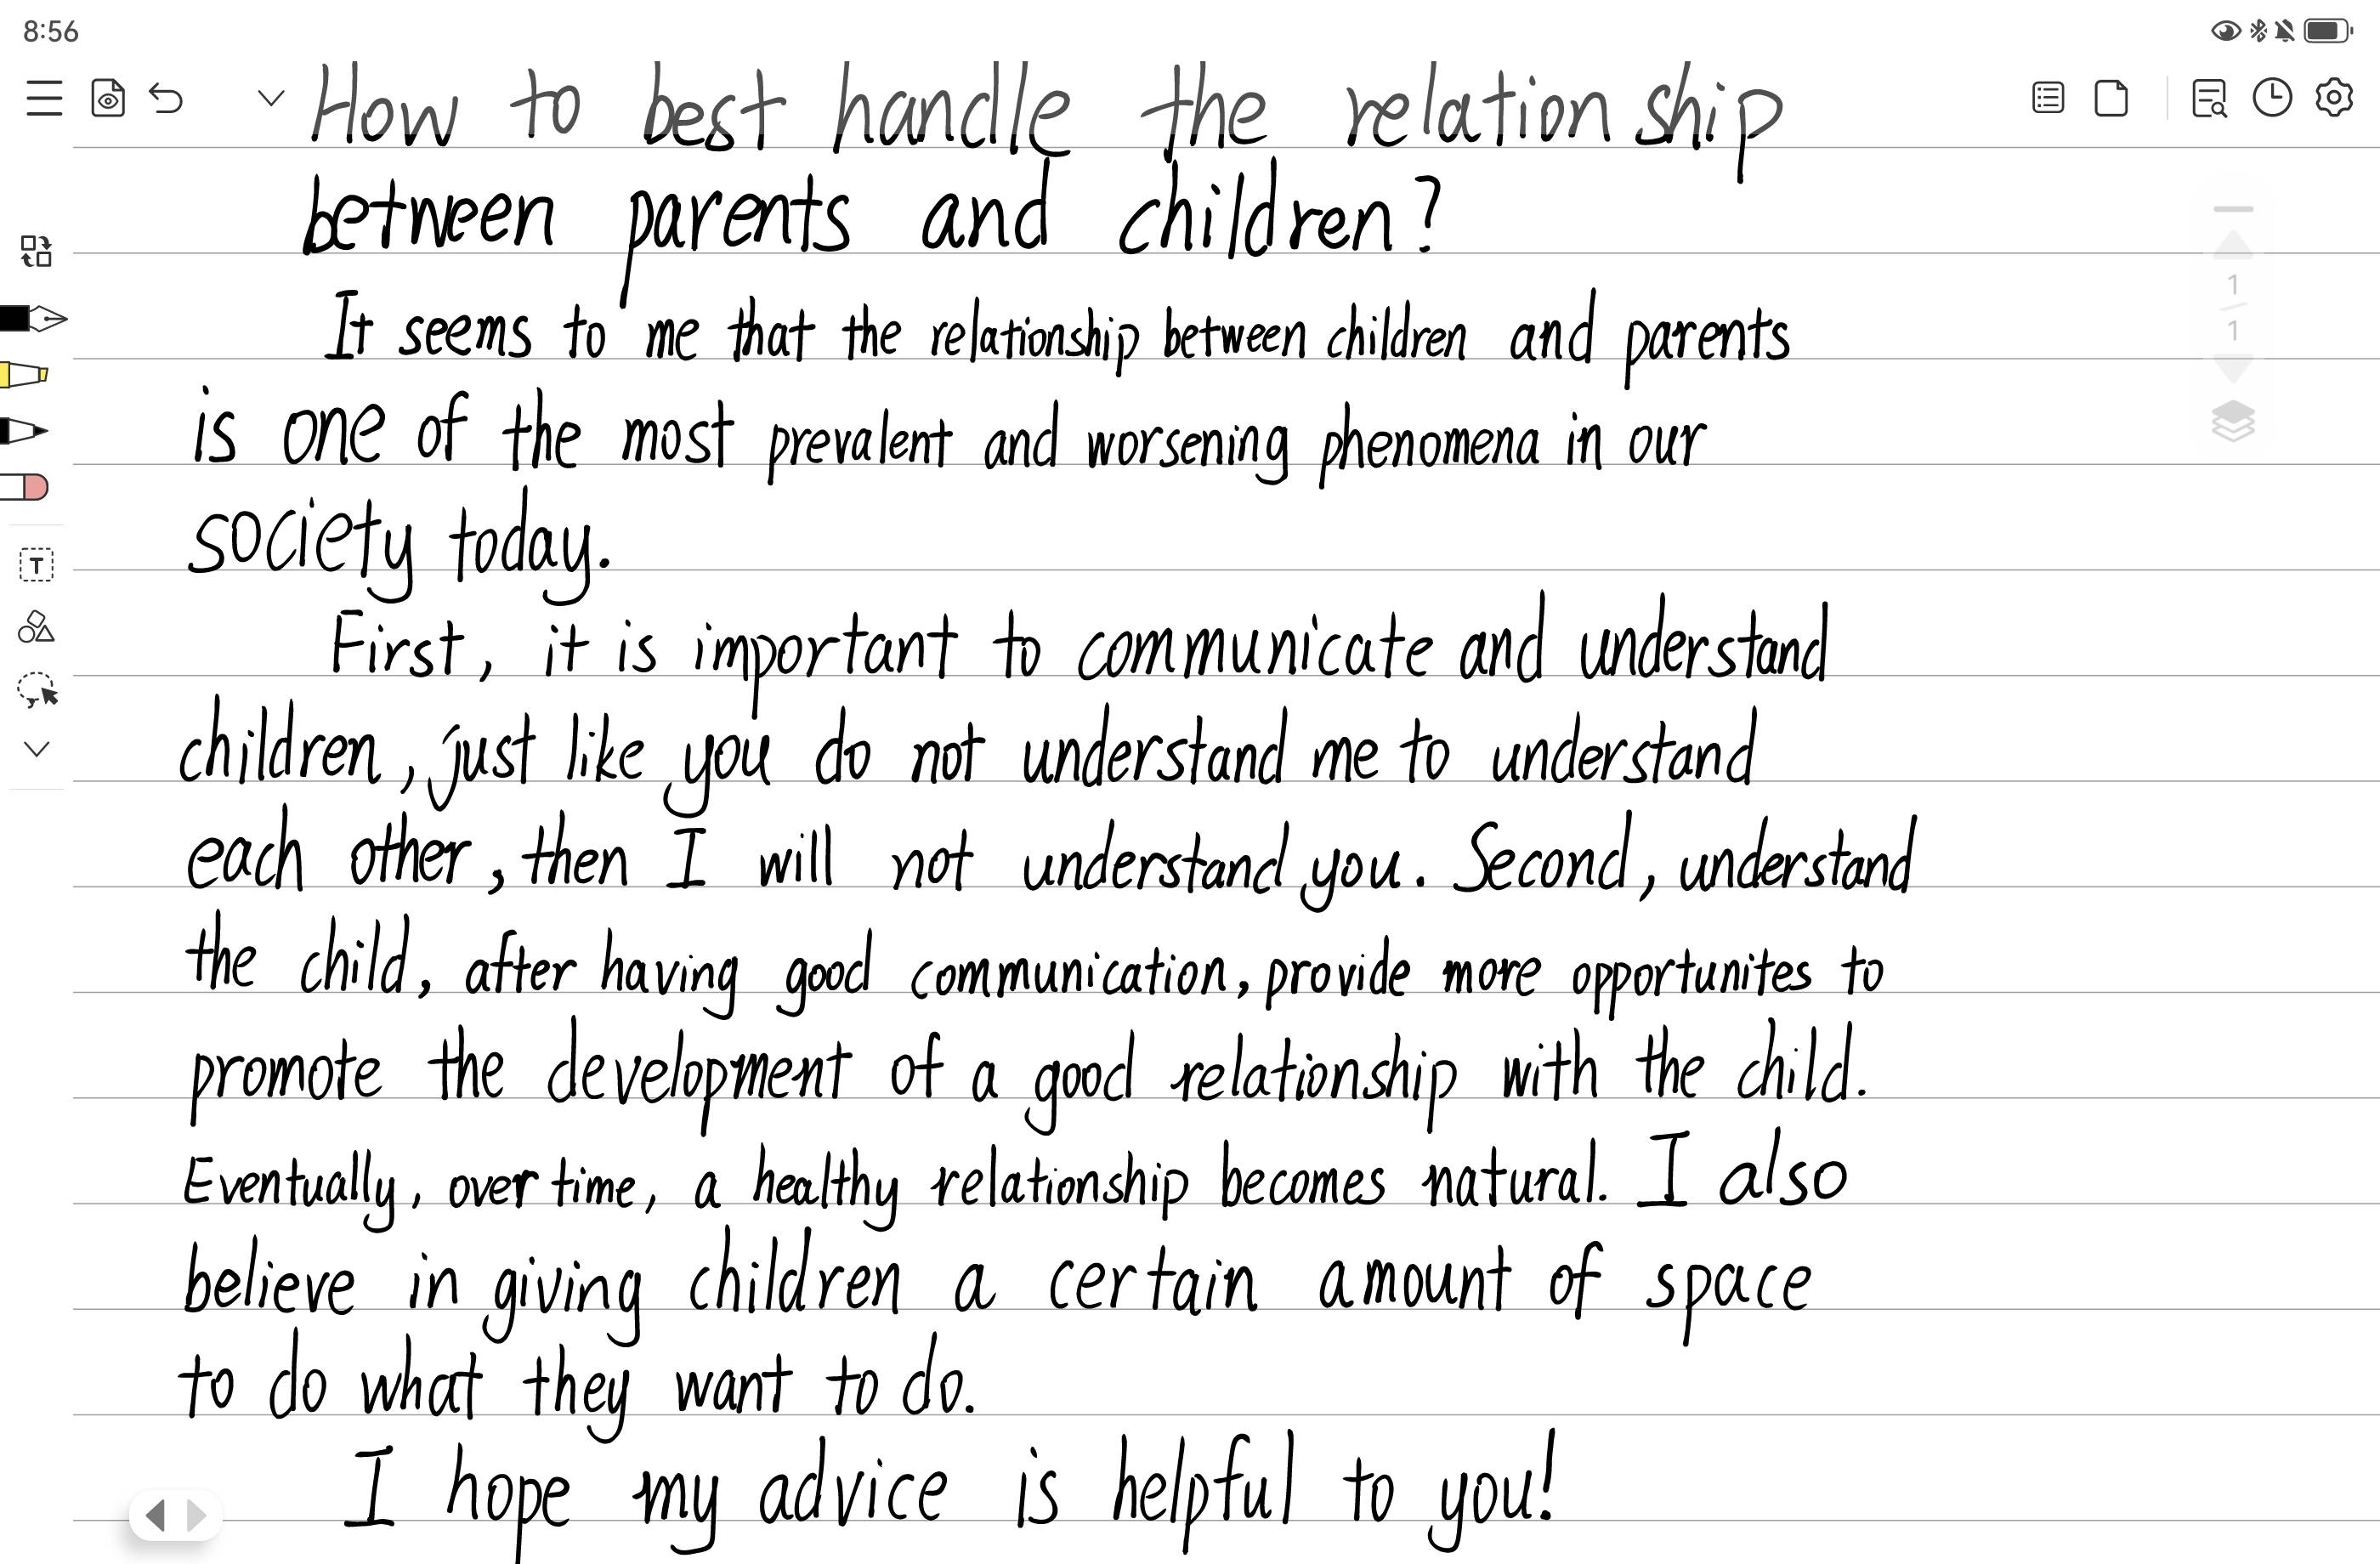 8:56
How to best handle the relationship
between parents and children?
It seems to me that the relationship between children and parents
is one of the most prevalent and worsening phenomena in our
society today.
First, it is important to communicate and understand
children, just like you do not understand me to understand
each other, then I will not understand you. Second, understand
the child, after having good communication, provide more opportunites to
promote the development of a good relationship with the child.
Eventually, over time, a healthy relationship becomes natural. I also
believe in giving children a certain amount of space
to do what they want to do.
I hope my advice is helpful to you!
1
1
T